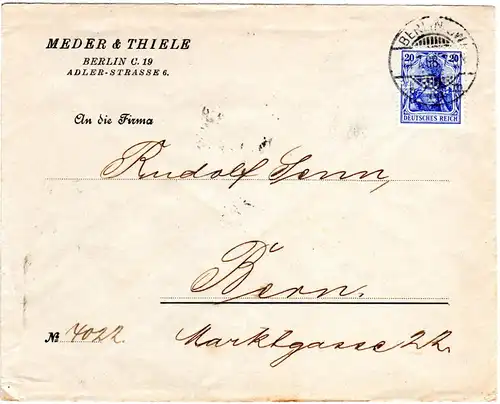 MEDER & THIELE
BERLIN C. 19
ADLER-STRASSE 6.
An die Firma
Rudolf Senn,
Bern.
№ 4022.
Marktgasse 22.
BERLIN
20 20
DEUTSCHES REICH